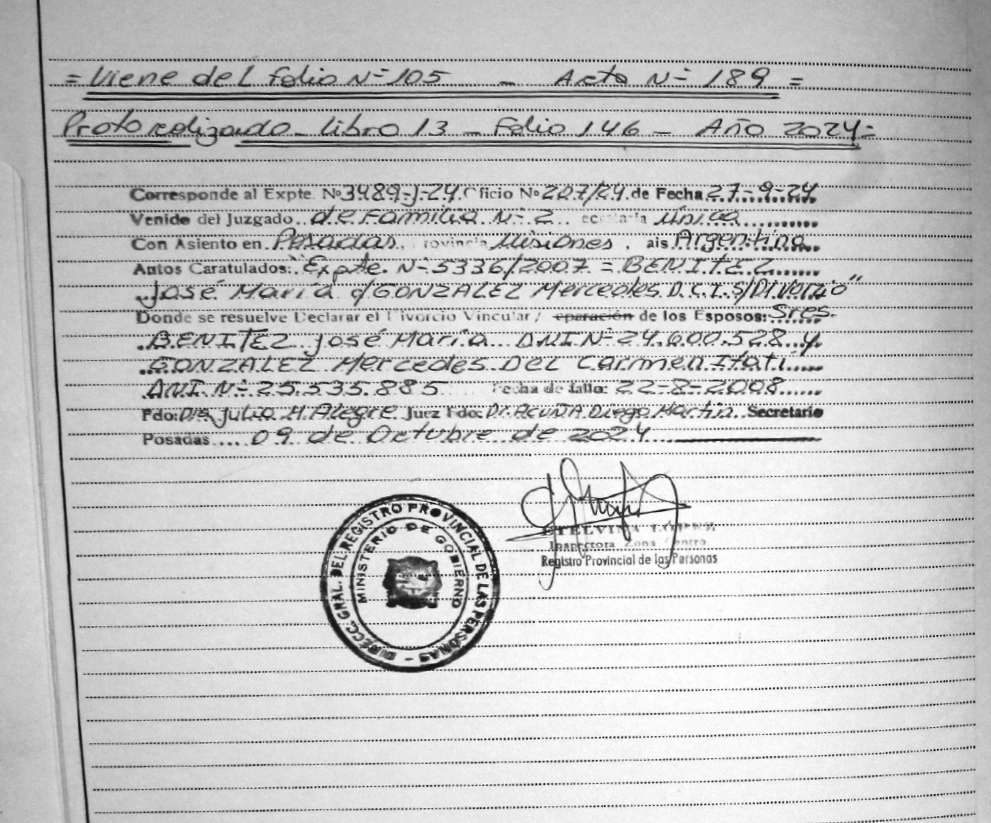 = Viene del Folio Nº 105 - Acta Nº 189 =
Protocolizado - Libro 13 - Folio 146 - Año 2024 =
Corresponde al Expte. Nº 3489-J-24. Oficio Nº 207/24. de Fecha 27-9-24
Venido del Juzgado de Familia Nº 2 ecretaría Única
Con Asiento en Posadas. rovincia Misiones. aís Argentina
Autos Caratulados: "Expte. Nº 5336/2007 = BENITEZ
José María c/GONZALEZ Mercedes D.C.I. S/Divorcio"
Donde se resuelve Declarar el Divorcio Vincular/ eparación de los Esposos: Sres.
BENITEZ José María DNI Nº 24.600.528 y
GONZALEZ Mercedes Del Carmen Itatí
DNI. Nº 25.535.885 Fecha de fallo: 22-8-2008
Fdo: Julia M. Alegre Juez Fdo: Dr. ACUÑA Diego Martín Secretario
Posadas 09 de Octubre de 2024
ETELVINA LÓPEZ
Inspectora Zona Centro
Registro Provincial de las Personas
DIRECC. GRAL. DEL REGISTRO PROVINCIAL DE LAS PERSONAS -
MINISTERIO DE GOBIERNO